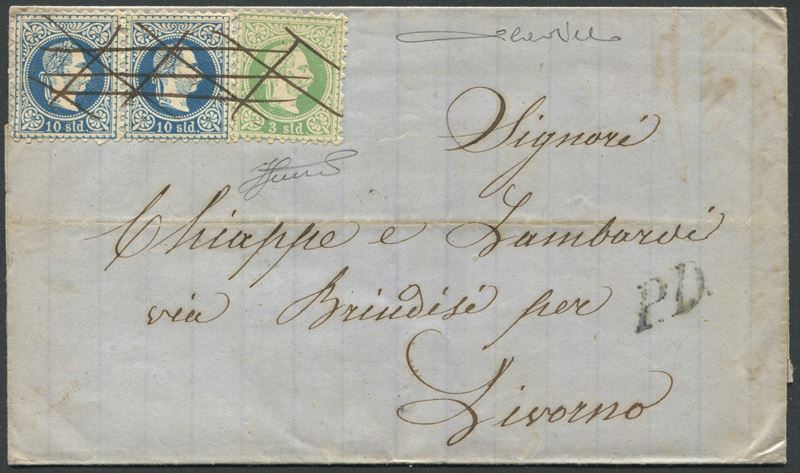 10 sld.
10 sld.
3 sld.
Signori
Chiappe e Lambardi
via Brindisi per
Livorno
P.D.